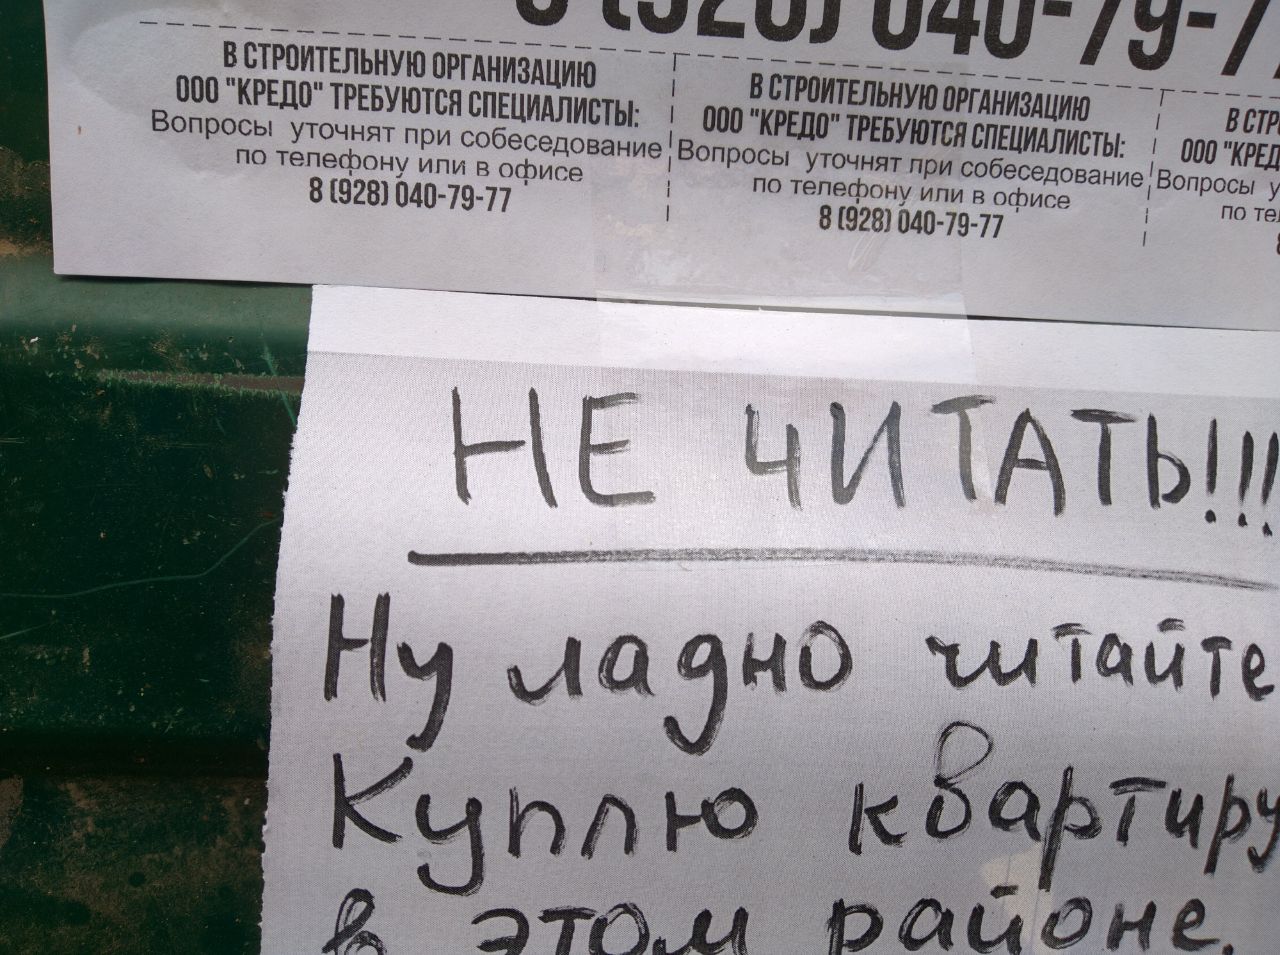 8 (928) 040-79-77
В СТРОИТЕЛЬНУЮ ОРГАНИЗАЦИЮ
ООО "КРЕДО" ТРЕБУЮТСЯ СПЕЦИАЛИСТЫ:
Вопросы уточнят при собеседование
по телефону или в офисе
8 (928) 040-79-77
В СТРОИТЕЛЬНУЮ ОРГАНИЗАЦИЮ
ООО "КРЕДО" ТРЕБУЮТСЯ СПЕЦИАЛИСТЫ:
Вопросы уточнят при собеседование
по телефону или в офисе
8 (928) 040-79-77
В
ООО
Вопросы
по
НЕ ЧИТАТЬ!!!
Ну ладно читайте
Куплю квартиру
в этом районе.